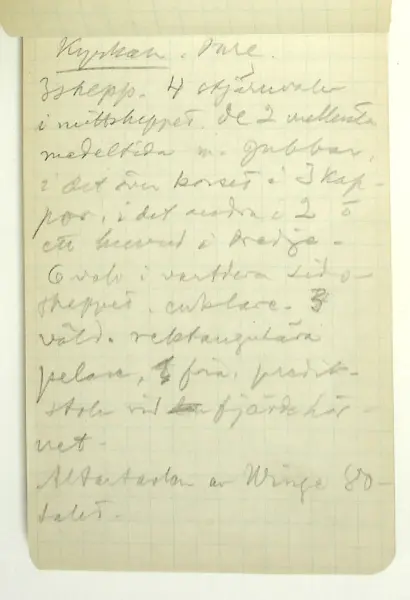 Kyrkan.
3skepp. 4 stjärnvalv
i mittskeppet. De 2 mellersta
medeltida m. gubbar,
i det över korset i 3 kap-
por, i det andra i 2 o
ett huvud i tredje.
6 valv i vardera sido-
skeppet, enklare.
väld. rektangulära
pelare, fria, predik-
stolen vid fjärde hör-
net.
Altartavlan av Winge 80-
talet.